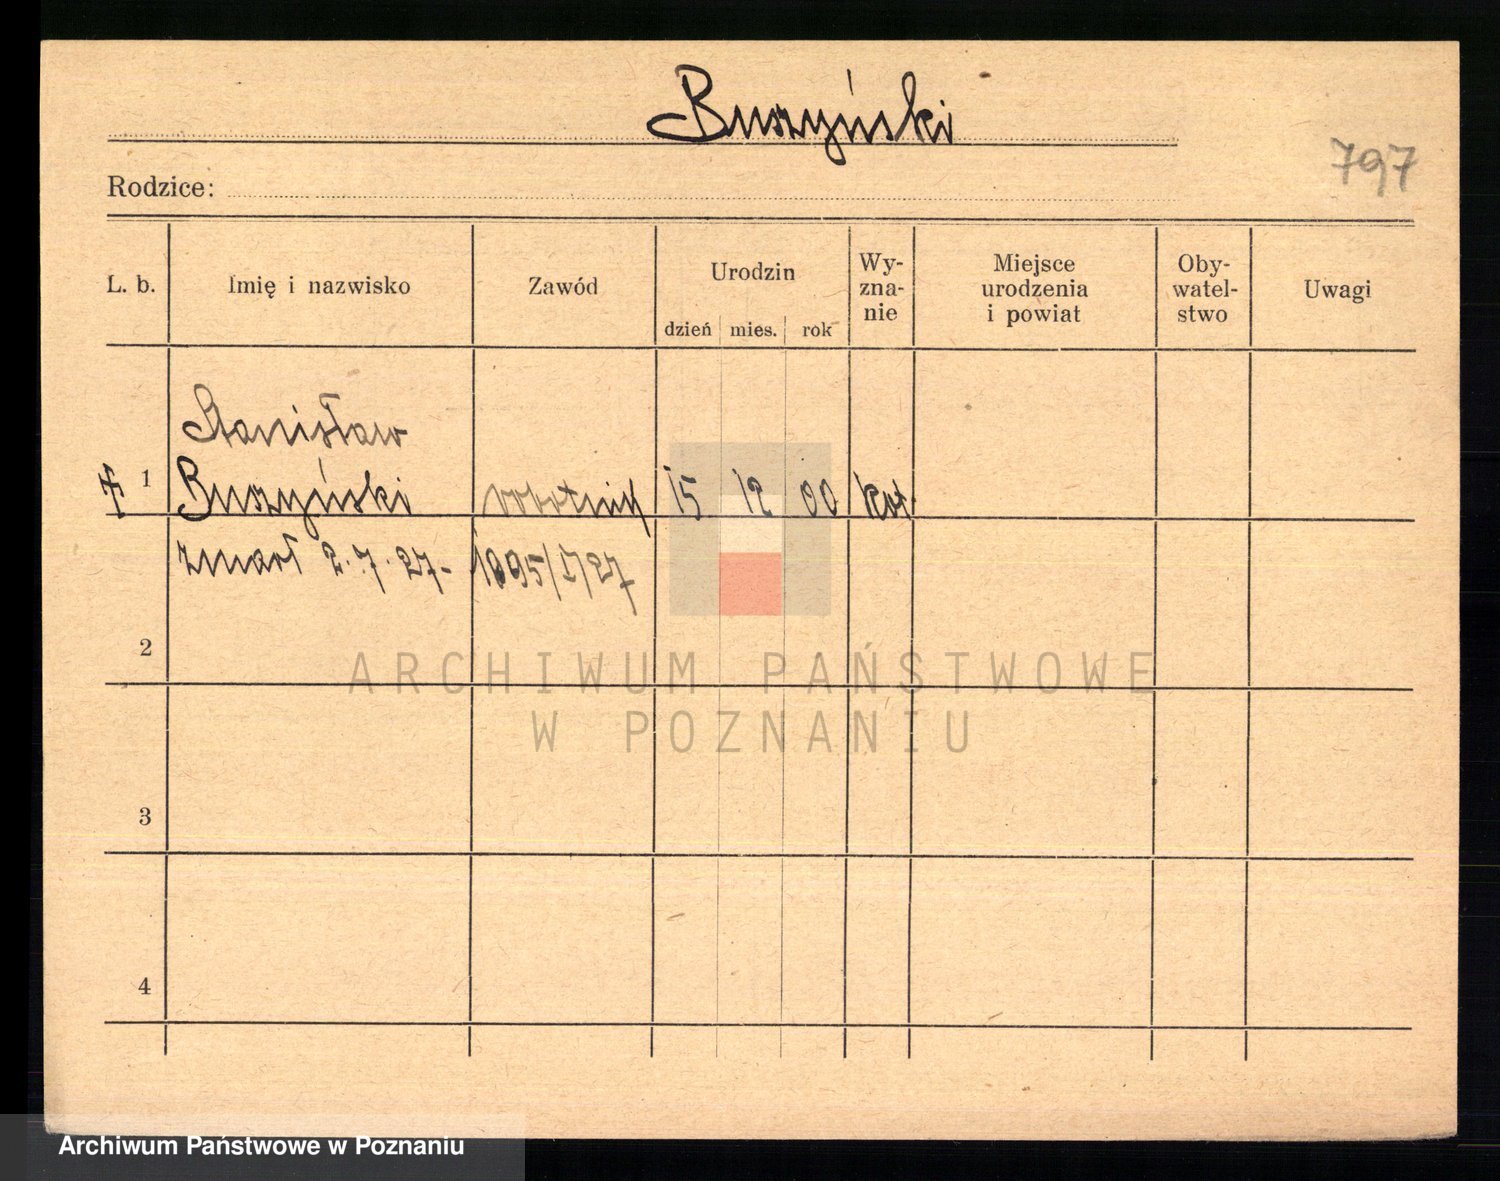 Buszyński
797
Rodzice:
L. b.
Imię i nazwisko
Zawód
Urodzin
dzień mies. rok
Wy-
zna-
nie
Miejsce
urodzenia
i powiat
Oby-
watel-
stwo
Uwagi
Stanisław
1 Buszyński robotnik 15 12 00 kat.
zmarł 2.7.27- 1095/I/27
2
3
4
ARCHIWUM PAŃSTWOWE
W POZNANIU
Archiwum Państwowe w Poznaniu